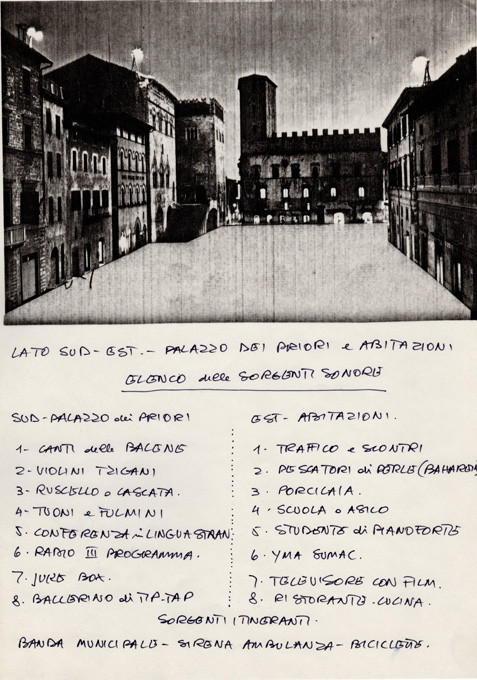 LATO SUD-EST.- PALAZZO DEI PRIORI e ABITAZIONI
ELENCO delle SORGENTI SONORE
SUD-PALAZZO dei PRIORI
1- CANTI delle BALENE
2- VIOLINI TZIGANI
3- RUSCELLO o CASCATA.
4- TUONI e FULMINI
5. CONFERENZA in LINGUA STRAN.
6. RADIO III PROGRAMMA.
7. JUKE BOX.
8. BALLERINO di TIP-TAP
EST- ABITAZIONI.
1. TRAFFICO e SCONTRI
2. PESCATORI di PERLE (BAHAREIN
3. PORCILAIA.
4. SCUOLA o ASILO
5. STUDENTE di PIANOFORTE
6. YMA SUMAC.
7. TELEVISORE CON FILM.
8. RISTORANTE-CUCINA.
SORGENTI ITINERANTI.
BANDA MUNICIPALE- SIRENA AMBULANZA- BICICLETTE.